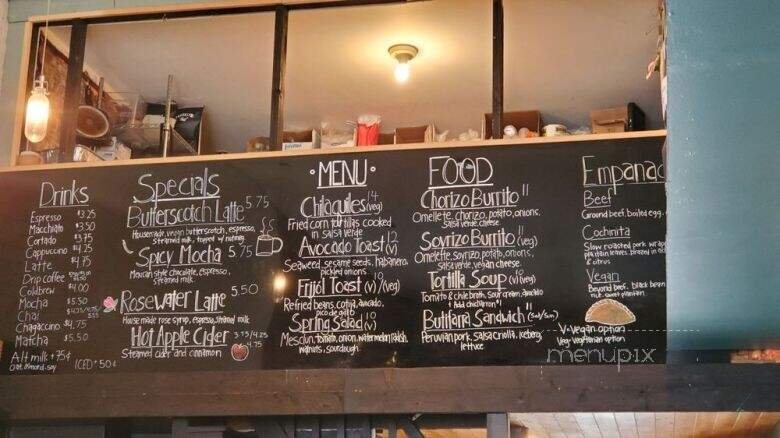 Drinks
Espresso $3.25
Macchiato $3.50
Cortado $3.75
Cappuccino $4.25
Latte $4.75
Drip Coffee
Coldbrew $4.00
Mocha $5.50
Chai
Chagaccino $4.75
Matcha $5.50
Alt milk + 75¢
Oat, almond, soy
ICED + 50¢
Specials
Butterscotch Latte 5.75
Housemade vegan butterscotch, espresso,
steamed milk, topped w/ nutmeg
Spicy Mocha 5.75
Mexican style chocolate, espresso,
steamed milk
Rosewater Latte 5.50
House made rose syrup, espresso, steamed milk
Hot Apple Cider 3.75/4.25
Steamed cider and cinnamon
• MENU •
Chilaquiles (veg) 14
Fried corn tortillas cooked
in salsa verde
Avocado Toast (v) 12
Seaweed, sesame seeds, habanero,
pickled onions
Frijol Toast (v)/(veg)
Refried beans, cotija, avocado,
pico de gallo
Spring Salad (v) 10
Mesclun, tomato, onion, watermelon radish,
walnuts, sourdough.
FOOD
Chorizo Burrito 11
Omelette, chorizo, potato, onions,
salsa verde, cheese
Soyrizo Burrito (veg) 11
Omelette, soyrizo, potato, onions,
salsa verde, vegan cheese.
Tortilla Soup (v)(veg)
Tomato & chile broth, sour cream, avocado
+ Add chicharron
Butifarra Sandwich
Peruvian pork, salsa criolla, iceberg
lettuce
Empanad
Beef
Ground beef, boiled egg,
Cochinita
Slow roasted pork wrap
plantain leaves, braised in
& citrus
Vegan
Beyond beef, black bean
sweet plantain
V-vegan option
Veg-vegetarian option
menupix